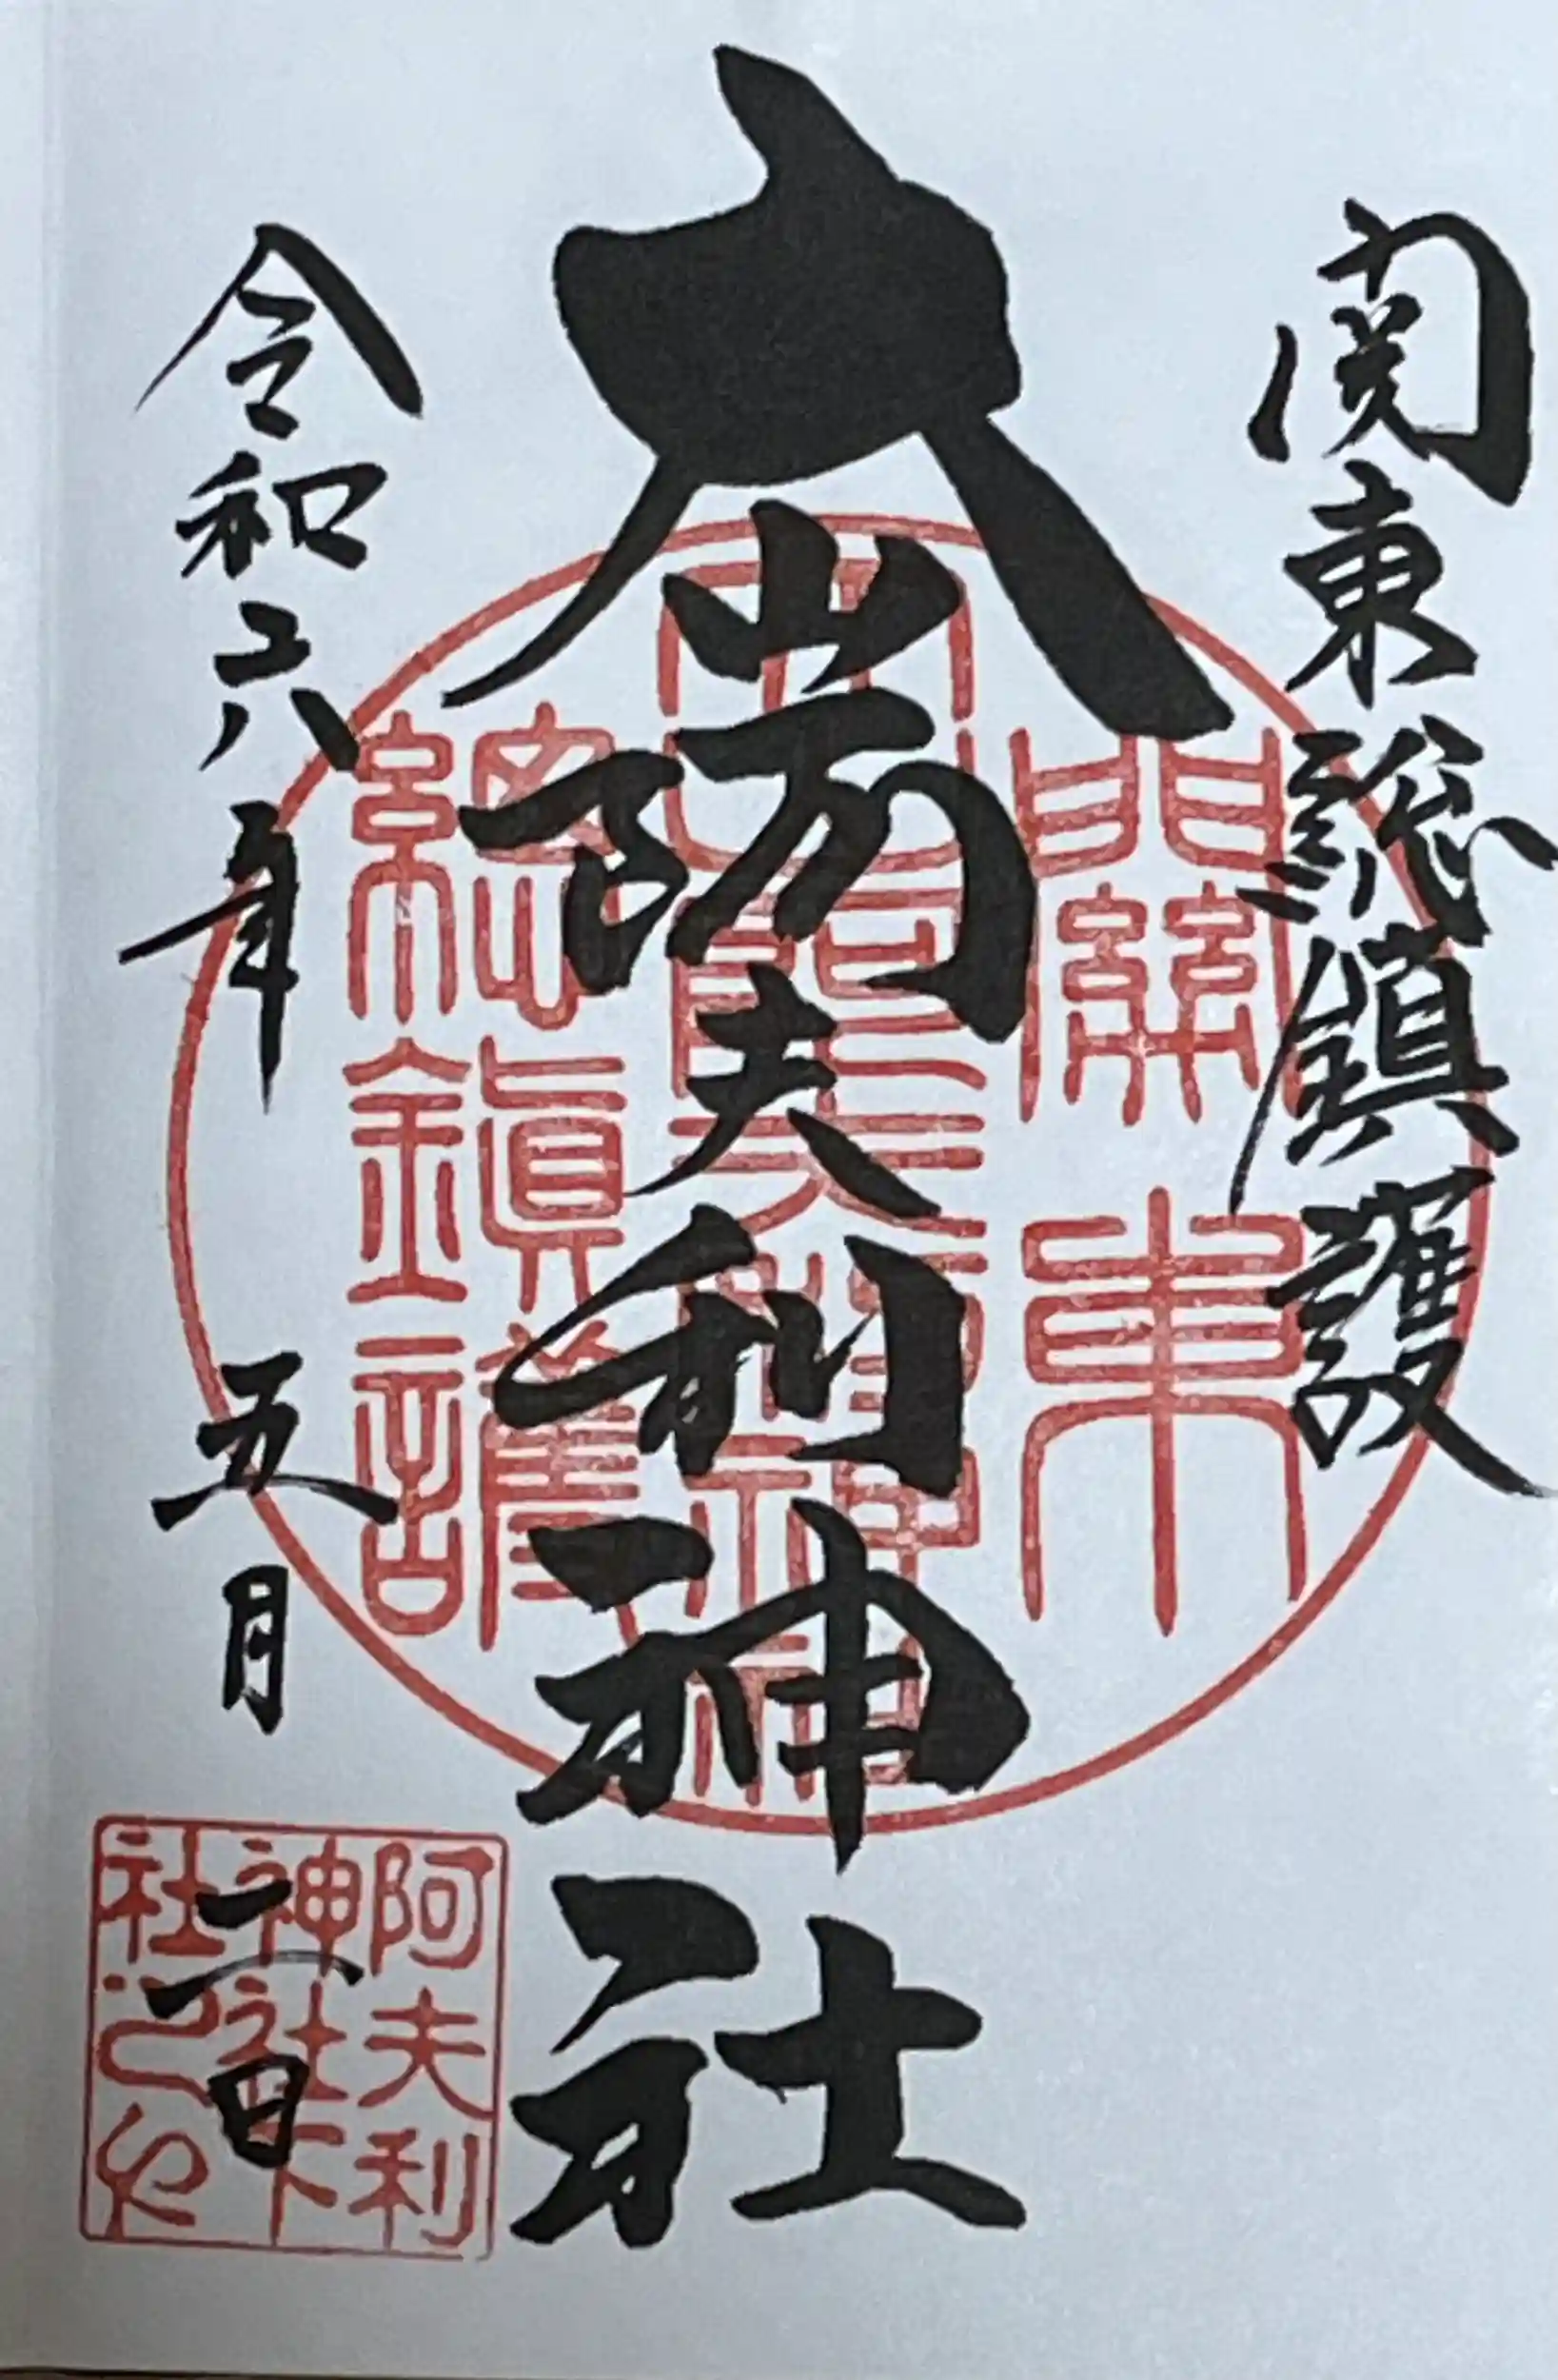 関東総鎮護
大山阿夫利神社
令和六年五月二日
關東
大山阿夫利神社
總鎭護
阿夫利
神社下
社之印